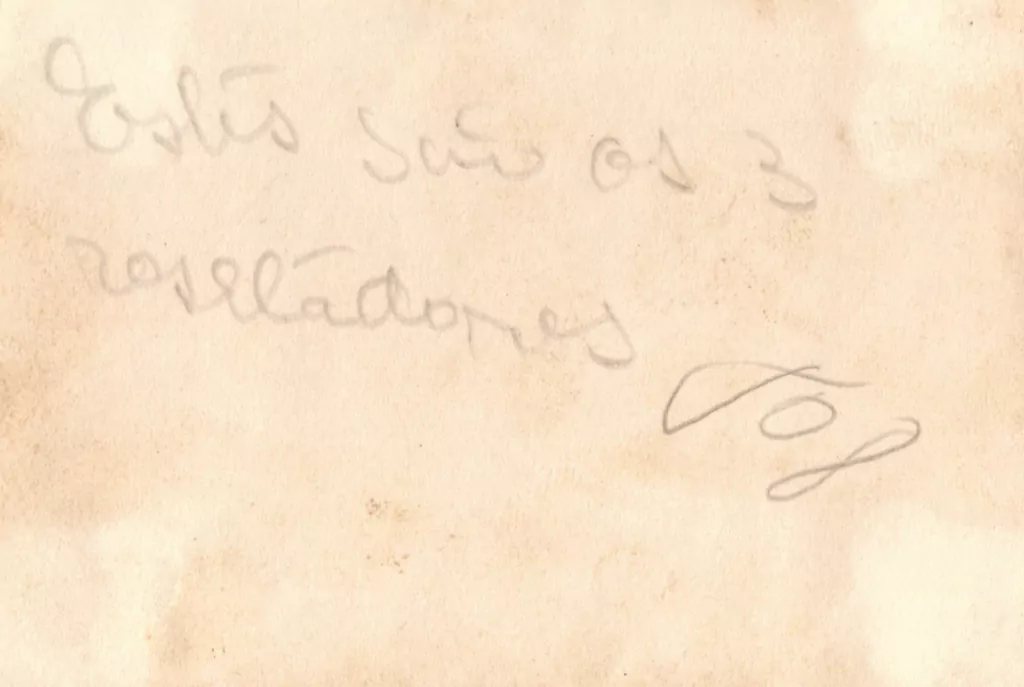 Estes são os 3
roseltadores